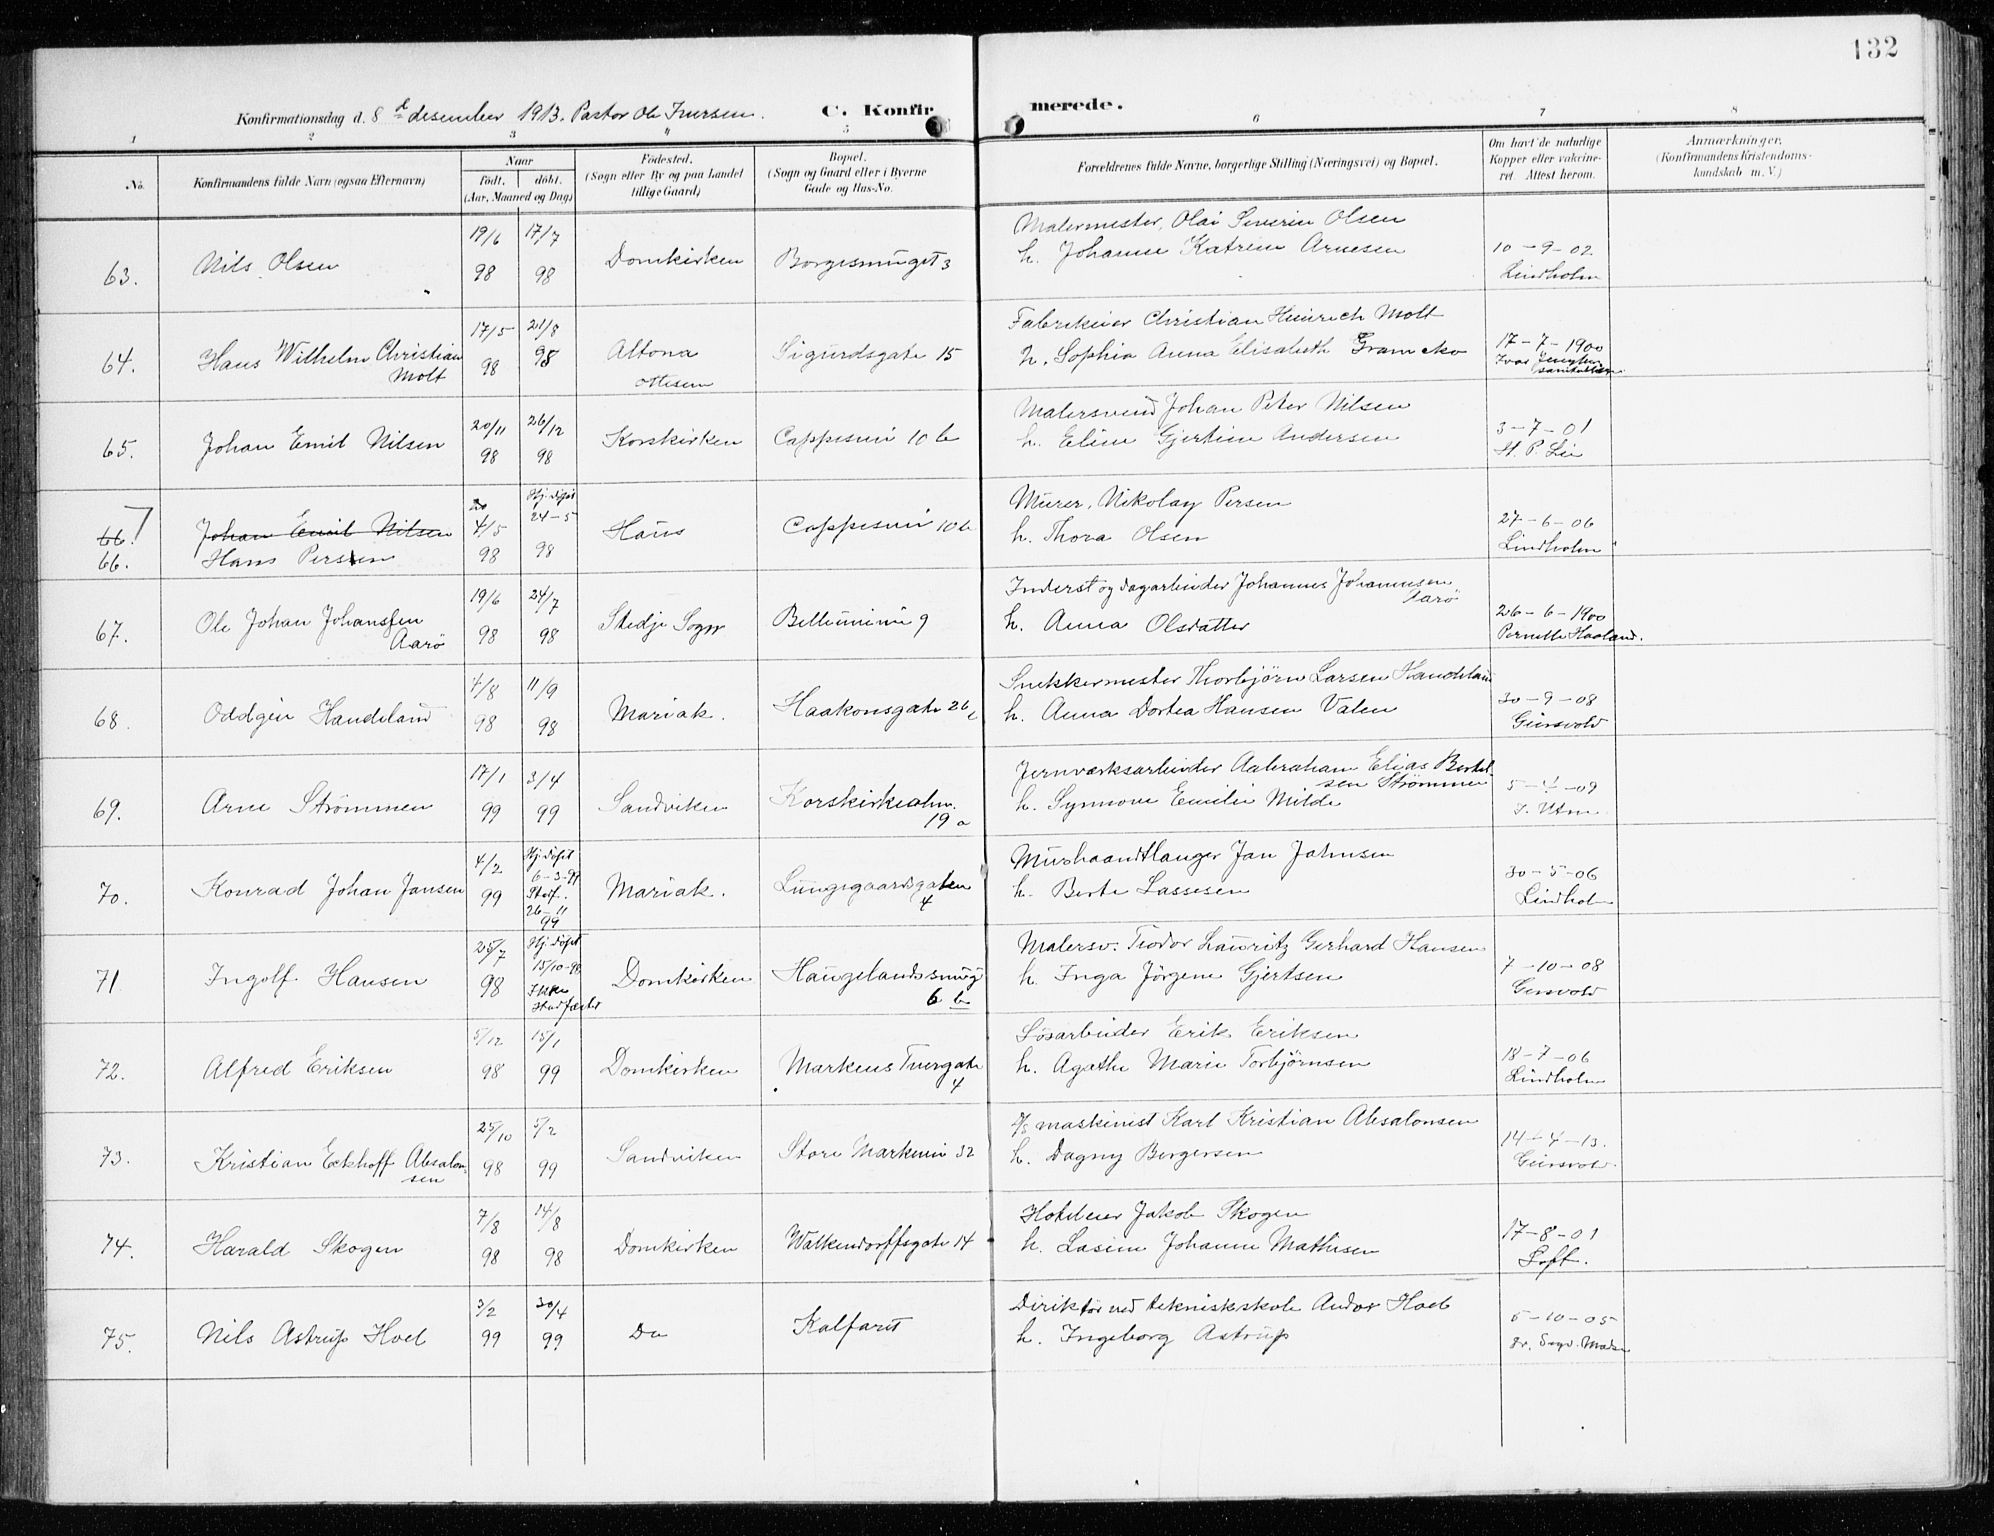 132
Konfirmationsdag d. 8 de desember 1913. Pastor Ole Iversen. C. Konfirmerede.
1 2 3 4 5 6 7 8
No. Konfirmandens fulde Navn (ogsaa Efternavn) Naar Födt. döbt. (Aar, Maaned og Dag) Födested. (Sogn eller By og paa Landet tillige Gaard) Bopæl. (Sogn og Gaard eller i Byerne Gade og Hus-No. Forældrenes fulde Navne, borgerlige Stilling (Næringsvei) og Bopæl. Om havt de naturlige Kopper eller vakcineret. Attest herom. Anmærkninger. (Konfirmandens Kristendomskundskab m. V.)
63. Nils Olsen 19/6 98 17/7 98 Domkirken Borgesmuget 3 Malermester, Olai Severin Olsen
h. Johanne Katrine Arnesen 10-9-02 Lindholm
64. Hans Wilhelm Christian Molt 17/5 98 21/8 98 Altona Ottesen Sigurdsgate 15 Fabrikeier Christian Heinrich Molt
h. Sophia Anna Elisabeth Gramcko 17-7-1900
65. Johan Emil Nilsen 20/11 98 26/12 98 Korskirken Cappesmi 10 b Malersvend Johan Peter Nilsen
h. Eline Gjertine Andersen 3-7-01 H. P. Lie
66. Johan Emil Nilsen
66. Hans Persen 4/5 98 Hj. döpt 24-5 98 Haus Cappesmi 10 b Murer, Nikolay Persen
h. Thora Olsen 27-6-06 Lindholm
67. Ole Johan Johanssen Aarö 19/6 98 24/7 98 Stedje Sogn 9 Inderst og dagarbeider Johannes Johannesen Aarö
h. Anna Olsdatter 26-6-1900 Pernille Haaland.
68. Oddgeir Handeland 4/8 98 11/9 98 Mariak. Haakonsgate 26 Snekkermester Thorbjörn Larsen Handeland
h. Anna Dortea Hansen Valen 30-9-08 Geirsvold
69. Arne Strömmen 17/1 99 3/4 99 Sandviken Korskirkealm. 19 a Jernværksarbeider Aabraham Elias Bertelsen Strömmen
h. Synnöve Emilie Milde 5-4-09 J. Utne
70. Konrad Johan Jansen 4/2 99 Hj. döpt 6-3-99 Stadf. 26-11 99 Mariak. Lungegaardsgaten 4 Murhaandlanger Jan Jahnsen
h. Berte Lassesen 30-5-06 Lindholm
71 Ingolf Hansen 25/7 98 Hj. döpt 15/10-98 Ikke Stadfæstet Domkirken Haugelandssmug 6 b Malersv. Teodor Lauritz Gerhard Hansen
h. Inga Jörgine Gjertsen 7-10-08 Geirsvold
72. Alfred Eriksen 5/12 98 15/1 99 Domkirken Markens Tvergate 4 Lösarbeider Erik Eriksen
h. Agathe Marie Torbjörnsen 18-7-06 Lindholm
73. Kristian Eckhoff Absalonsen 25/10 98 5/2 99 Sandviken Store Markevei 32 D/s maskinist Karl Kristian Absalonsen
h. Dagny Bergersen 14-4-13. Geirsvold.
74. Harald Skogen 7/8 98 14/8 98 Domkirken Walkendorffsgate 14 Hoteleier Jakob Skogen
h. Lasine Johanne Mathisen 17-8-01 Loft.
75. Nils Astrup Hoel 3/2 99 30/4 99 Do Kalfaret Direktör ved tekniskskole Andor Hoel
h. Ingeborg Astrup 5-10-05